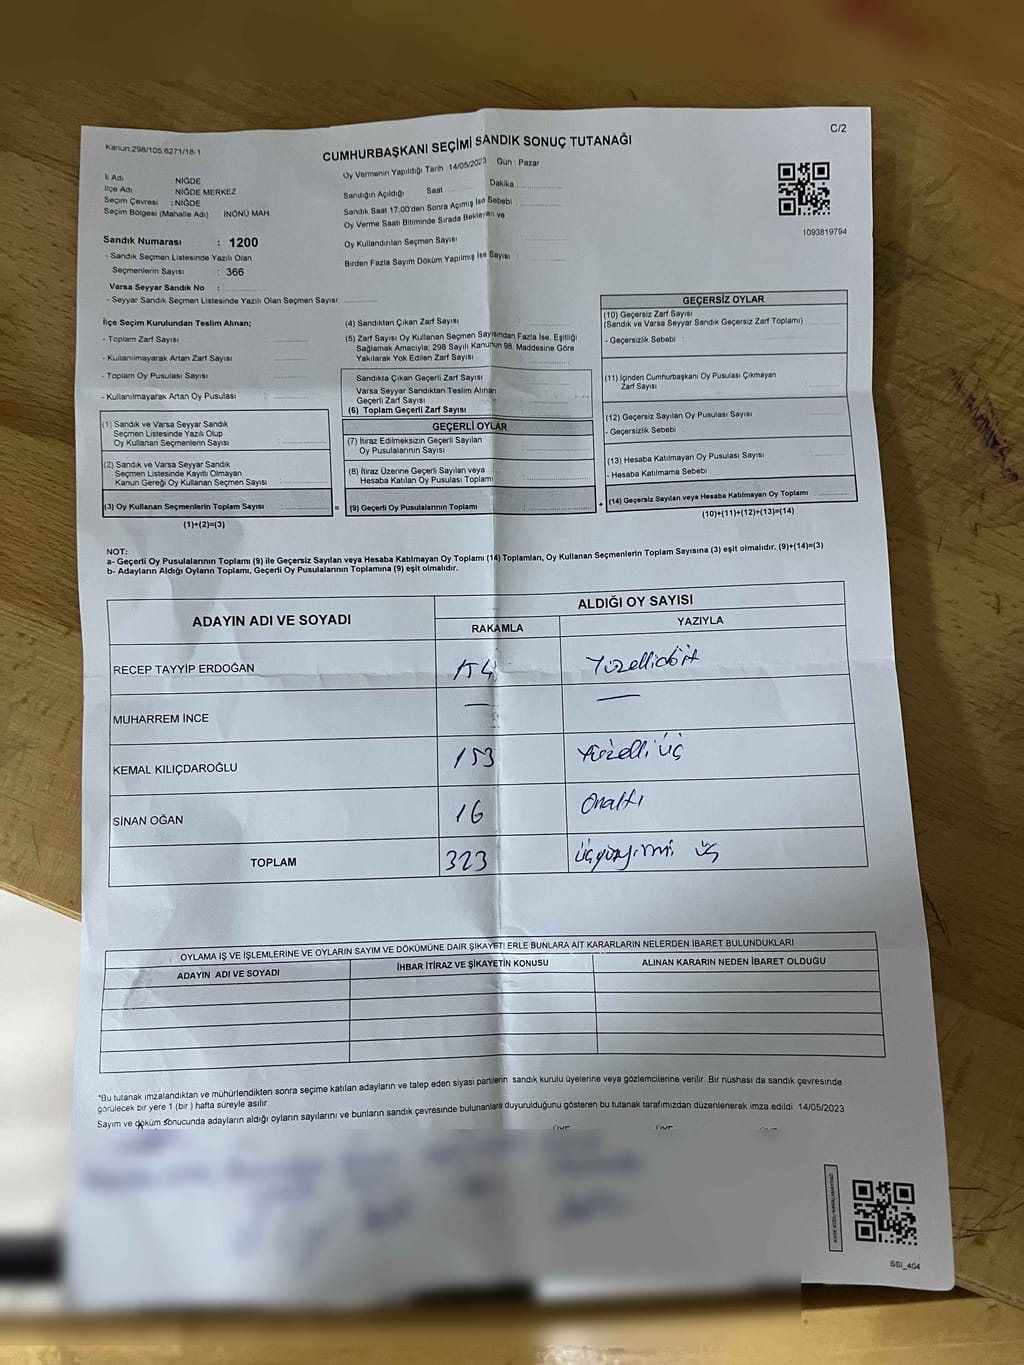 Kanun:298/105,6271/18-1
CUMHURBAŞKANI SEÇİMİ SANDIK SONUÇ TUTANAĞI
C/2
İli Adı : NİĞDE
İlçe Adı : NİĞDE MERKEZ
Seçim Çevresi : NİĞDE
Seçim Bölgesi (Mahalle Adı) İNÖNÜ MAH.
Sandık Numarası : 1200
- Sandık Seçmen Listesinde Yazılı Olan
Seçmenlerin Sayısı : 366
Varsa Seyyar Sandık No :
- Seyyar Sandık Seçmen Listesinde Yazılı Olan Seçmen Sayısı:
Oy Vermenin Yapıldığı Tarih :14/05/2023 Gün : Pazar
Sandığın Açıldığı Saat Dakika
Sandık Saat 17.00'den Sonra Açılmış İse Sebebi :
Oy Verme Saati Bitiminde Sırada Bekleyen ve
Oy Kullandırılan Seçmen Sayısı
Birden Fazla Sayım Döküm Yapılmış İse Sayısı :
1093819794
İlçe Seçim Kurulundan Teslim Alınan;
- Toplam Zarf Sayısı
- Kullanılmayarak Artan Zarf Sayısı
- Toplam Oy Pusulası Sayısı
- Kullanılmayarak Artan Oy Pusulası
(1) Sandık ve Varsa Seyyar Sandık
Seçmen Listesinde Yazılı Olup
Oy Kullanan Seçmenlerin Sayısı :
(2) Sandık ve Varsa Seyyar Sandık
Seçmen Listesinde Kayıtlı Olmayan
Kanun Gereği Oy Kullanan Seçmen Sayısı :
(3) Oy Kullanan Seçmenlerin Toplam Sayısı :
(1)+(2)=(3)
(4) Sandıktan Çıkan Zarf Sayısı
(5) Zarf Sayısı Oy Kullanan Seçmen Sayısından Fazla İse, Eşitliği
Sağlamak Amacıyla; 298 Sayılı Kanunun 98. Maddesine Göre
Yakılarak Yok Edilen Zarf Sayısı
Sandıkta Çıkan Geçerli Zarf Sayısı
Varsa Seyyar Sandıktan Teslim Alınan
Geçerli Zarf Sayısı
(6) Toplam Geçerli Zarf Sayısı
GEÇERLİ OYLAR
(7) İtiraz Edilmeksizin Geçerli Sayılan
Oy Pusulalarının Sayısı
(8) İtiraz Üzerine Geçerli Sayılan veya
Hesaba Katılan Oy Pusulası Toplamı
= (9) Geçerli Oy Pusulalarının Toplamı :
GEÇERSİZ OYLAR
(10) Geçersiz Zarf Sayısı
(Sandık ve Varsa Seyyar Sandık Geçersiz Zarf Toplamı)
- Geçersizlik Sebebi :
(11) İçinden Cumhurbaşkanı Oy Pusulası Çıkmayan
Zarf Sayısı
(12) Geçersiz Sayılan Oy Pusulası Sayısı
- Geçersizlik Sebebi :
(13) Hesaba Katılmayan Oy Pusulası Sayısı
- Hesaba Katılmama Sebebi :
+ (14) Geçersiz Sayılan veya Hesaba Katılmayan Oy Toplamı
(10)+(11)+(12)+(13)=(14)
NOT:
a- Geçerli Oy Pusulalarının Toplamı (9) ile Geçersiz Sayılan veya Hesaba Katılmayan Oy Toplamı (14) Toplamları, Oy Kullanan Seçmenlerin Toplam Sayısına (3) eşit olmalıdır. (9)+(14)=(3)
b- Adayların Aldığı Oyların Toplamı, Geçerli Oy Pusulalarının Toplamına (9) eşit olmalıdır.
ADAYIN ADI VE SOYADI ALDIĞI OY SAYISI
RAKAMLA YAZIYLA
RECEP TAYYİP ERDOĞAN 154 Yüzellidört
MUHARREM İNCE — —
KEMAL KILIÇDAROĞLU 153 Yüzelli üç
SİNAN OĞAN 16 Onaltı
TOPLAM 323 üçyüzyirmi üç
OYLAMA İŞ VE İŞLEMLERİNE VE OYLARIN SAYIM VE DÖKÜMÜNE DAİR ŞİKAYETLERLE BUNLARA AİT KARARLARIN NELERDEN İBARET BULUNDUKLARI
ADAYIN ADI VE SOYADI İHBAR İTİRAZ VE ŞİKAYETİN KONUSU ALINAN KARARIN NEDEN İBARET OLDUĞU
*Bu tutanak imzalandıktan ve mühürlendikten sonra seçime katılan adayların ve talep eden siyasi partilerin sandık kurulu üyelerine veya gözlemcilerine verilir. Bir nüshası da sandık çevresinde
görülecek bir yere 1 (bir ) hafta süreyle asılır.
Sayım ve döküm sonucunda adayların aldığı oyların sayılarını ve bunların sandık çevresinde bulunanlara duyurulduğunu gösteren bu tutanak tarafımızdan düzenlenerek imza edildi. 14/05/2023
SSI_404